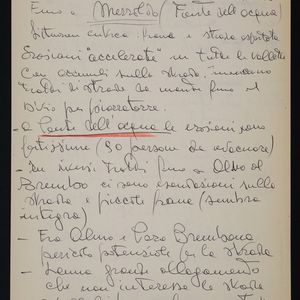 Fino a Mezzoldo (Fronte dell'acqua)
Situazione critica frana e strada asportata
Erosioni "accelerate" in tutte le vallette
con accumuli sulla strada, innescano
tratti di strada da monte fino al
Bivio per piazzatorre.
- a Ponte dell'acqua le erosioni sono
fortissime (90 persone da evacuare)
- In diversi tratti fino a Olmo al
Brembo ci sono esondazioni sulla
strada e piccole frane (sembra
integra)
- Fra Olmo e Lazo Brembana
pericolo potenziale per la strada
- Lenna grande allagamento
che non interessa la strada